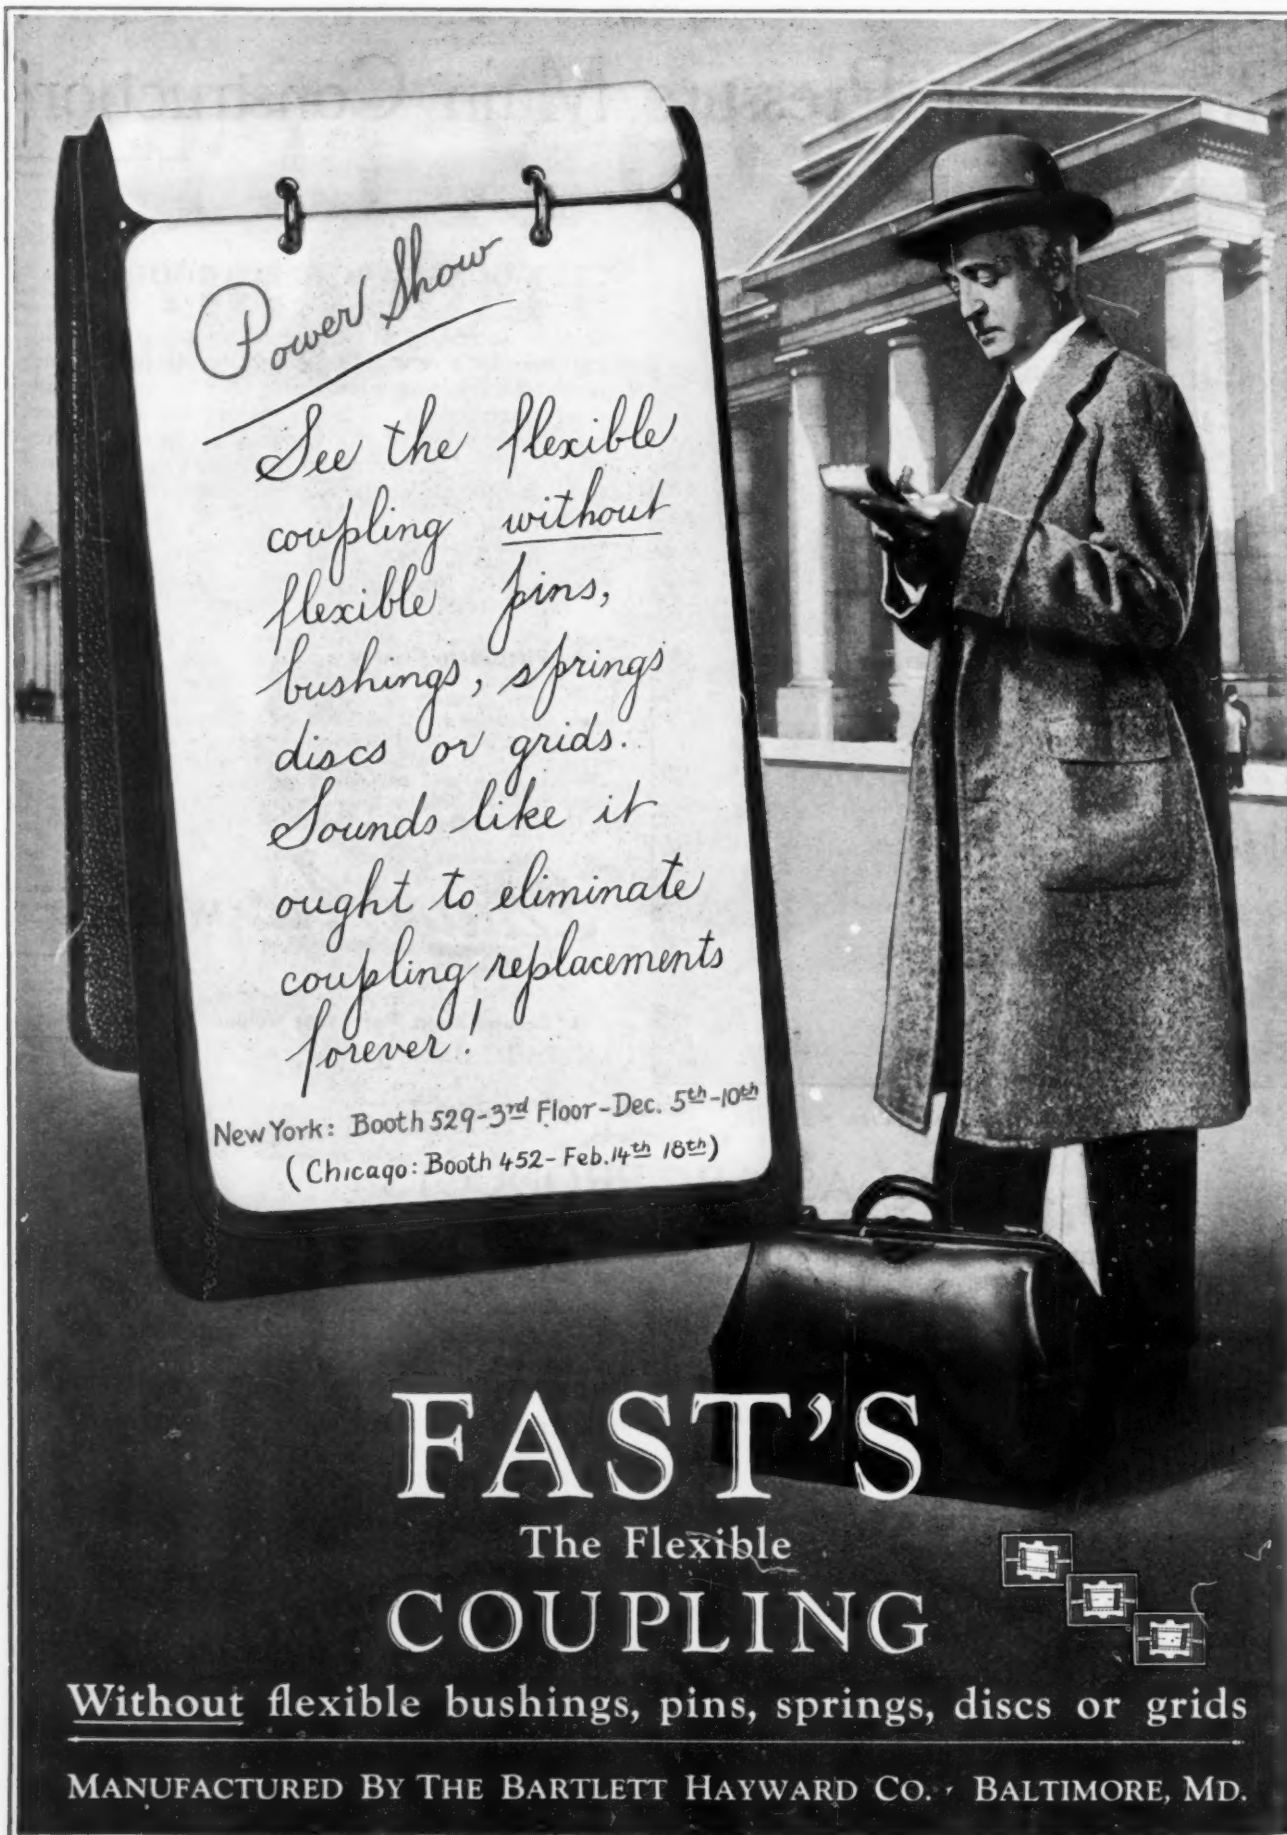 Power Show
See the flexible
coupling without
flexible pins,
bushings, springs
discs or grids.
Sounds like it
ought to eliminate
coupling replacements
forever!
New York: Booth 529-3rd Floor-Dec. 5th-10th
(Chicago: Booth 452-Feb. 14th 18th)
FAST'S
The Flexible
COUPLING
Without flexible bushings, pins, springs, discs or grids
MANUFACTURED BY THE BARTLETT HAYWARD CO. · BALTIMORE, MD.